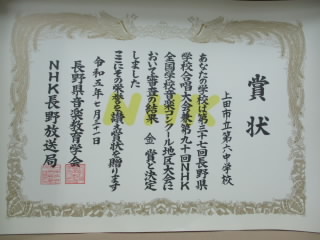 賞状
上田市立第六中学校
あなたの学校は第三十七回長野県
学校合唱大会兼第九十回NHK
全国学校音楽コンクール地区大会に
おいて審査の結果 金賞と決定
しました
ここにその栄誉を讃え賞状を贈ります
令和五年七月三十一日
長野県音楽教育学会
NHK長野放送局